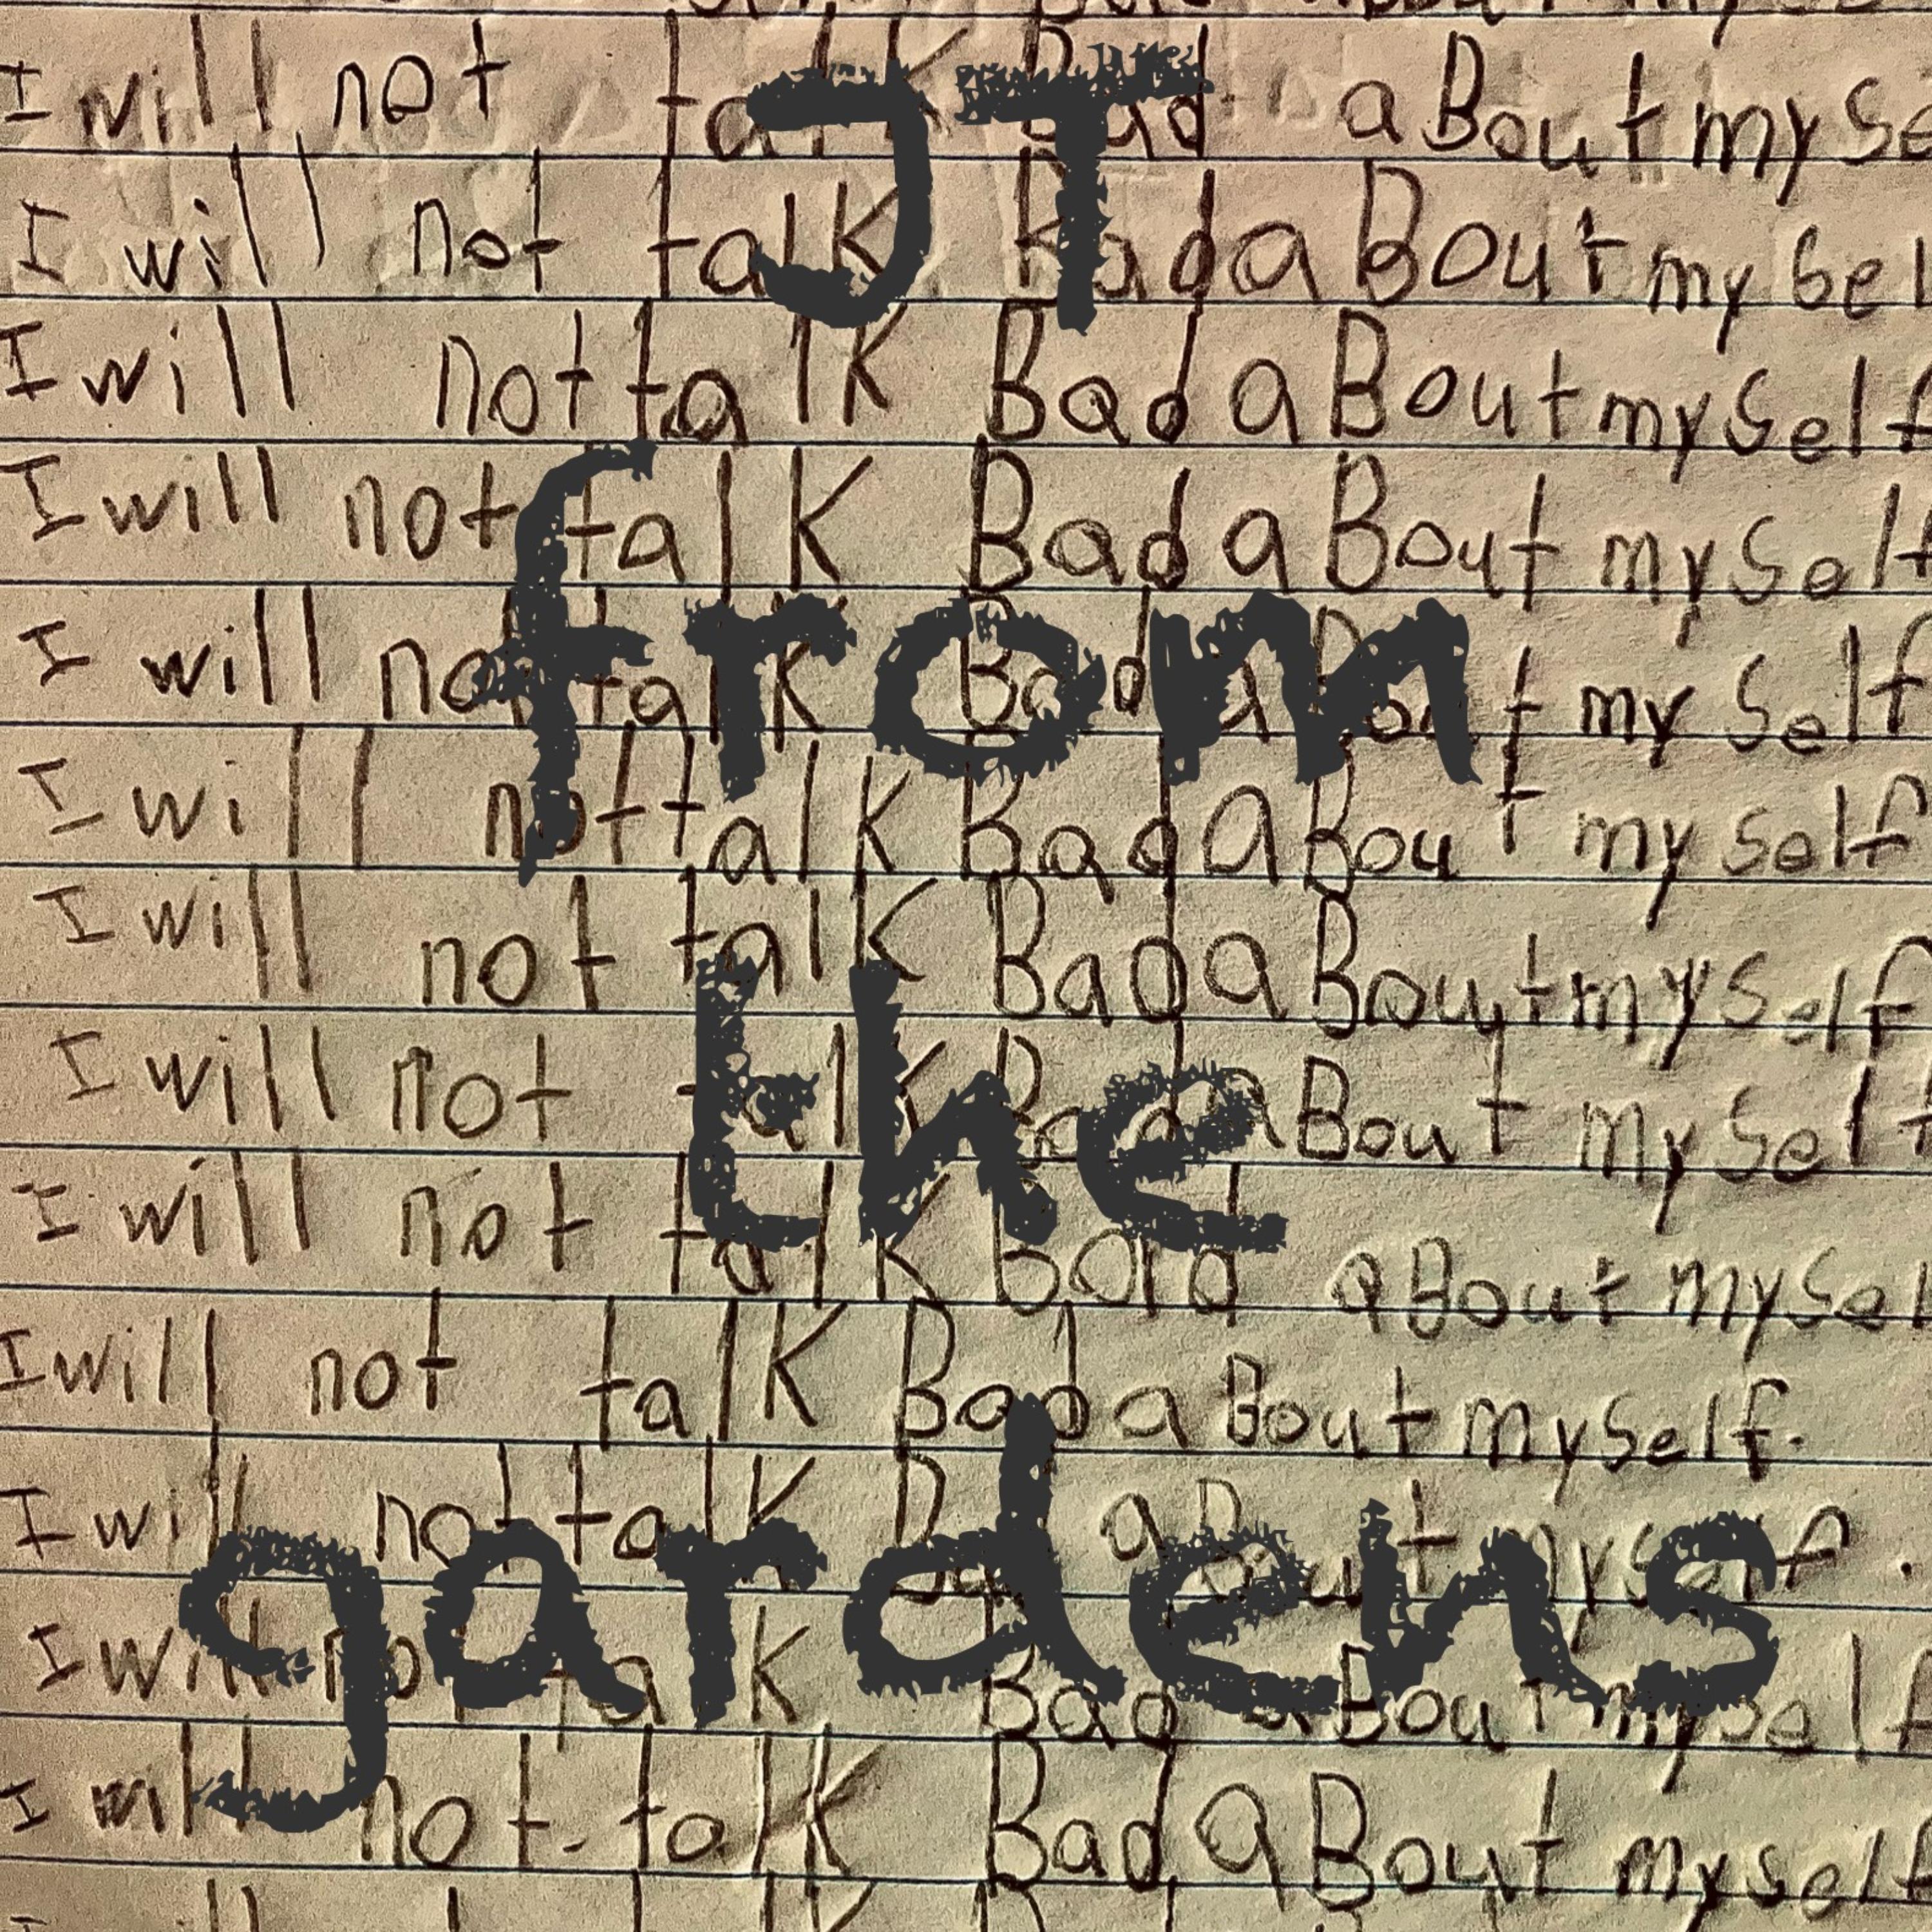 JT
from
the
gardens
I will not talk Bad aBout mySe
I will not talk Bad aBout my Sel
I will not talk Bad aBout mySelf
I will not talk Bad aBout mySelf
I will not talk Bad aBout my Self
I will not talk Bad aBout my Self
I will not talk Bad aBout mySelf
I will not talk Bad aBout my Self
I will not talk aBout mySel
I will not talk Bad aBout mySelf.
I will not talk Bad aBout mySelf.
I will not talk Bad aBout mySelf
I will not talk Bad aBout myself